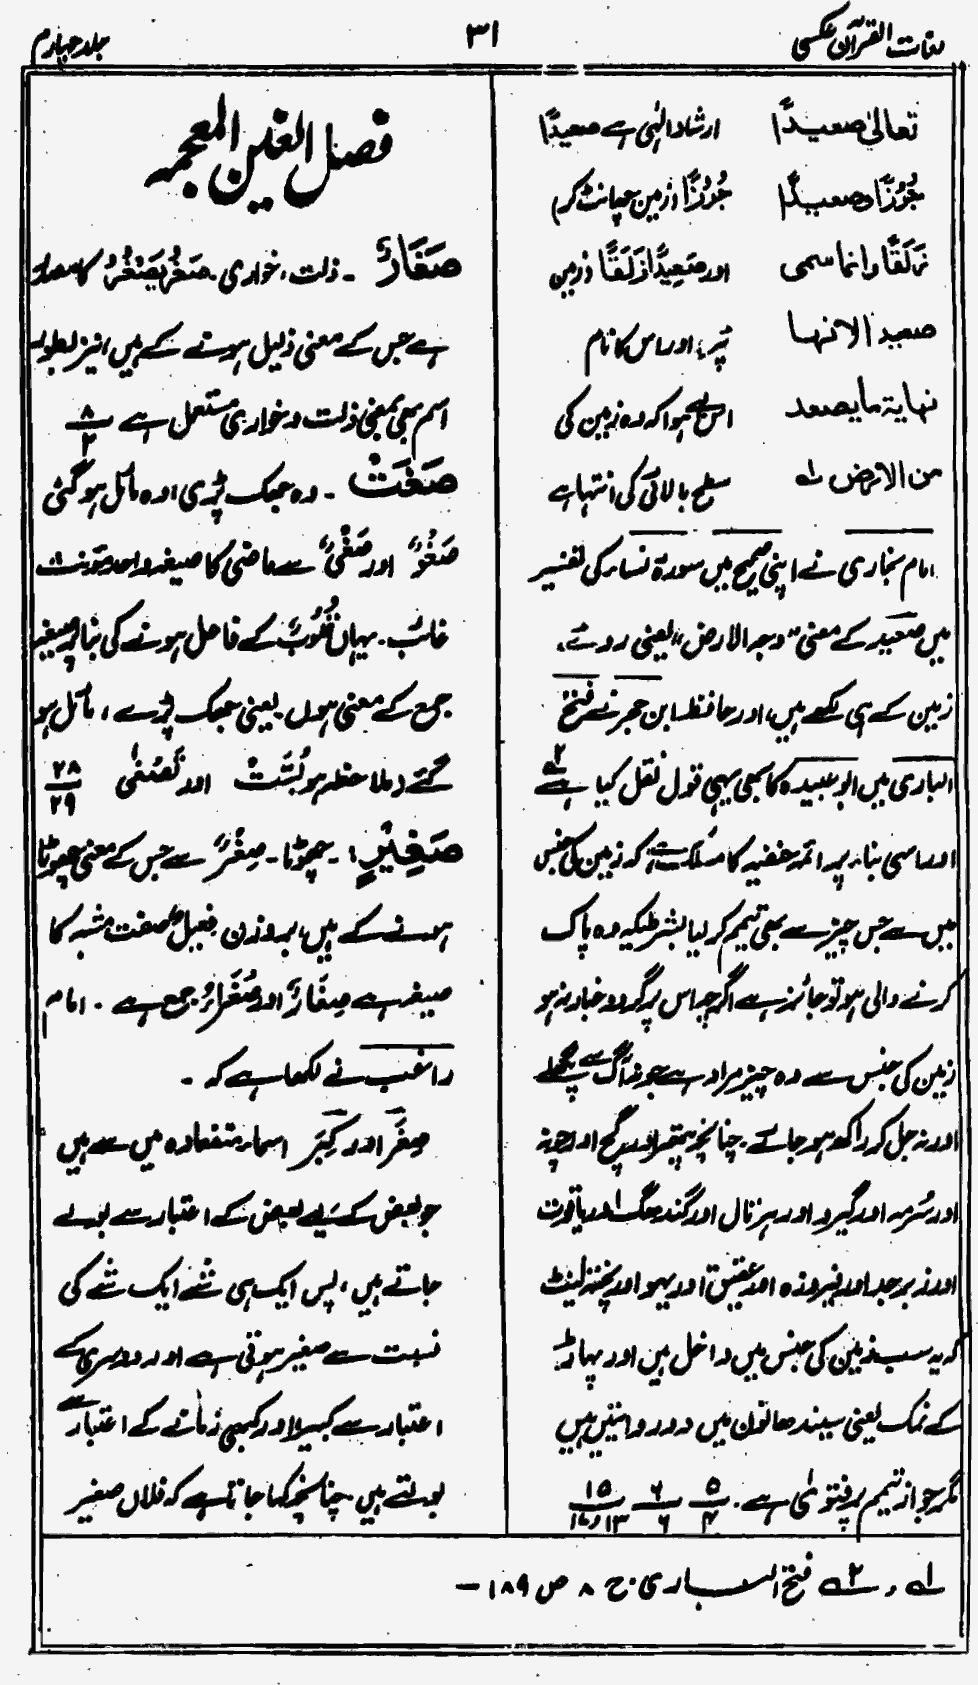 لغات القرآن عکسی
۳۱
جلد چہارم
تعالیٰ صعیدًا ارشاد الٰہی ہے صعیدًا
جُرُزًا و صعیدًا جُرُزًا (زمین چھانٹ کر)
زَلَقًا وانما سمی اور صَعِیدًا زَلَقًا زمین
صعید الانہا پَر، اور اس کا نام
نہایۃ ما یصعد اس لیے ہوا کہ وہ زمین کی
من الارض لہ سطح بالائی کی انتہا ہے
امام بخاری نے اپنی صحیح میں سورۃ نساء کی تفسیر
میں صعید کے معنی "وجہ الارض" یعنی روئے
زمین کے ہی لکھے ہیں، اور حافظ ابن حجر نے فتح
الباری میں ابو عبیدہ کا بھی یہی قول نقل کیا ہے ۲؎
اور اسی بناء پر ائمہ حنفیہ کا مسلک ہے کہ زمین کی جنس
میں سے جس چیز سے بھی تیمم کر لیا بشرطیکہ وہ پاک
کرنے والی ہو تو جائز ہے اگرچہ اس پر گرد و غبار نہ ہو
زمین کی جنس سے وہ چیز مراد ہے جو نہ آگ سے پگھلے
اور نہ جل کر راکھ ہو جائے۔ چنانچہ پتھر اور گچ اور چونہ
اور سُرمہ اور گیرو اور ہڑتال اور گندھک اور یاقوت
اور زبرجد اور فیروزہ اور عقیق اور یہو اور پختہ اینٹ
کہ یہ سب زمین کی جنس میں داخل ہیں اور پہاڑ
کے نمک یعنی سیندھا نون میں دو روایتیں ہیں
مگر جواز تیمم پر فتویٰ ہے۔ ۵/۴ ۶/۶ ۱۵/۱۳ و ۱۷
فصل الغین المعجمہ
صَغَارٌ ۔ ذلت، خواری۔ صَغُرَ یَصْغُرُ کا مصدر
ہے جس کے معنی ذلیل ہونے کے ہیں، نیز بطور
اسم بھی بمعنی ذلت و خواری مستعمل ہے ۸/۲
صَغَتْ ۔ وہ جھک پڑی، وہ مائل ہو گئی
صَغْوٌ اور صَغْیٌ سے ماضی کا صیغہ واحد مؤنث
غائب۔ یہاں قُلُوبٌ کے فاعل ہونے کی بنا پر صیغہ
جمع کے معنی ہوں یعنی جھک پڑے، مائل ہو
گئے (ملاحظہ ہو بُسَّتْ اور تَصْغٰی ۲۸/۲۹
صَغِیْرٍ: ۔ چھوٹا ۔ صِغْرٌ سے جس کے معنی چھوٹا
ہونے کے ہیں، بروزن فعیلٌ صفت مشبہ کا
صیغہ ہے صِغَارٌ اور صُغَرَاءُ جمع ہے ۔ امام
راغب نے لکھا ہے کہ ۔
صِغَر اور کِبَر اسماء متضادہ میں سے ہیں
جو بعض کے لیے بعض کے اعتبار سے بولے
جاتے ہیں، پس ایک ہی شئے ایک شئے کی
نسبت سے صغیر ہوتی ہے اور دوسری کے
اعتبار سے کبیر اور کبھی زمانے کے اعتبار سے
بولتے ہیں چنانچہ کہا جاتا ہے کہ فلاں صغیر
۱؎ و ۲؎ فتح البـاری ج ۸ ص ۱۸۹ —